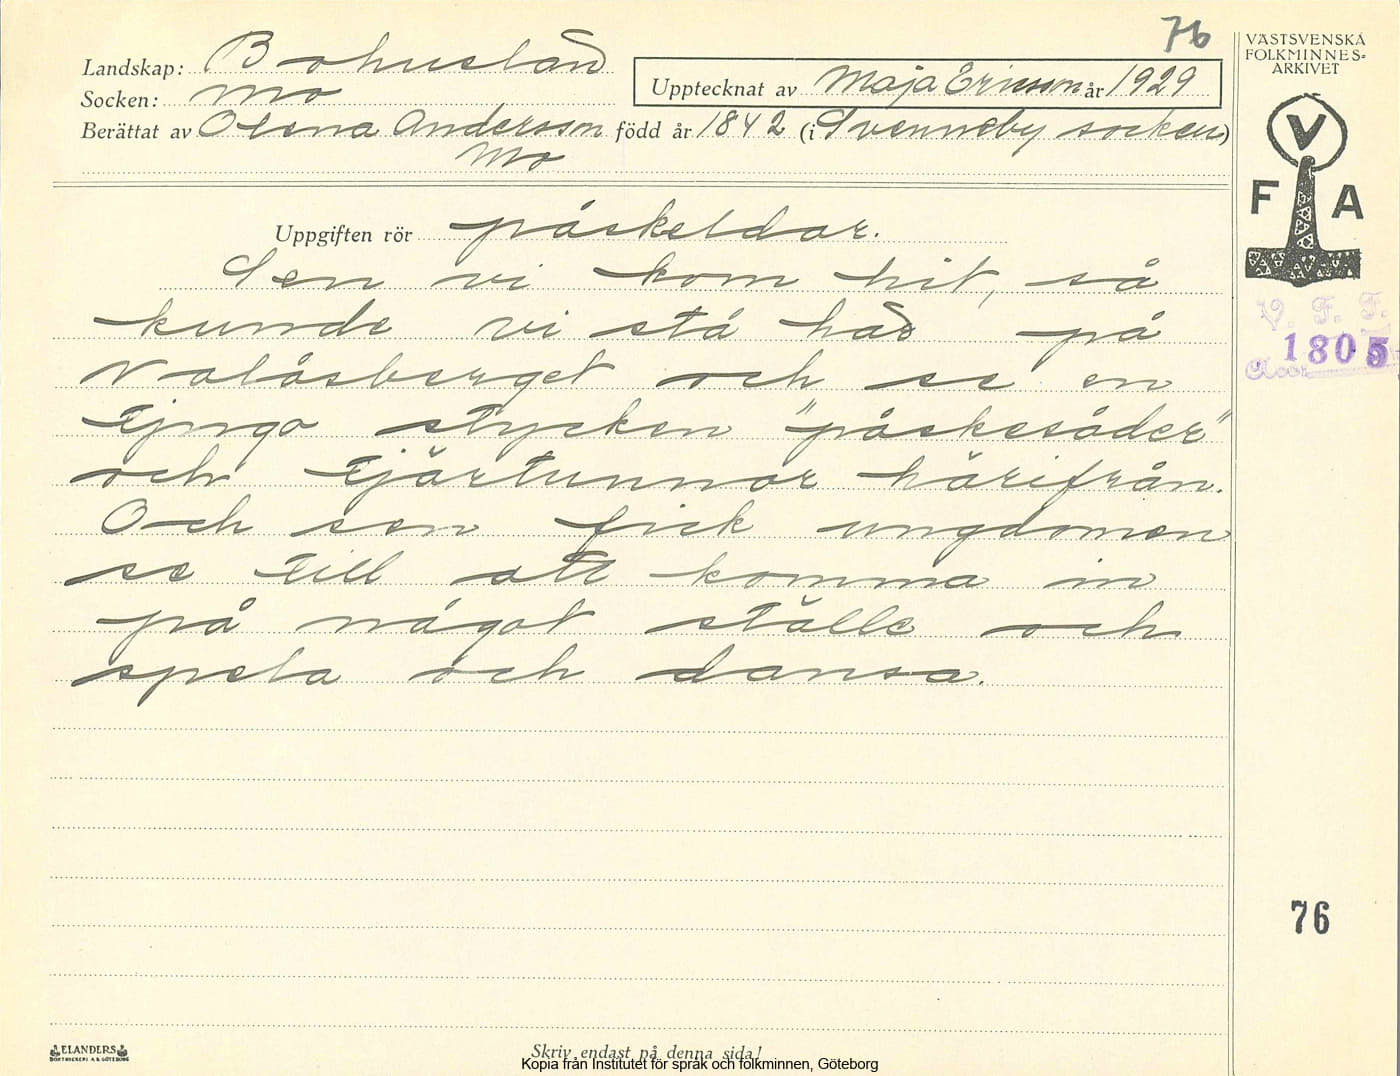 76
Landskap: Bohuslän
Socken: Mo
Upptecknat av Maja Ericsson år 1929
Berättat av Olena Andersson född år 1842 (i Svenneby socken)
Mo
VÄSTSVENSKA
FOLKMINNES-
ARKIVET
V
F A
V. F. F.
Acc. 1805
Uppgiften rör påskeldar.
Sen vi kom hit, så
kunde vi stå här på
Valåsberget och se en
tjugo stycken "påskesåder"
och tjärtunnor härifrån.
Och sen fick ungdomen
se till att komma in
på något ställe och
spela och dansa.
76
ELANDERS
BOKTRYCKERI A.B. GÖTEBORG
Skriv endast på denna sida!
Kopia från Institutet för språk och folkminnen, Göteborg